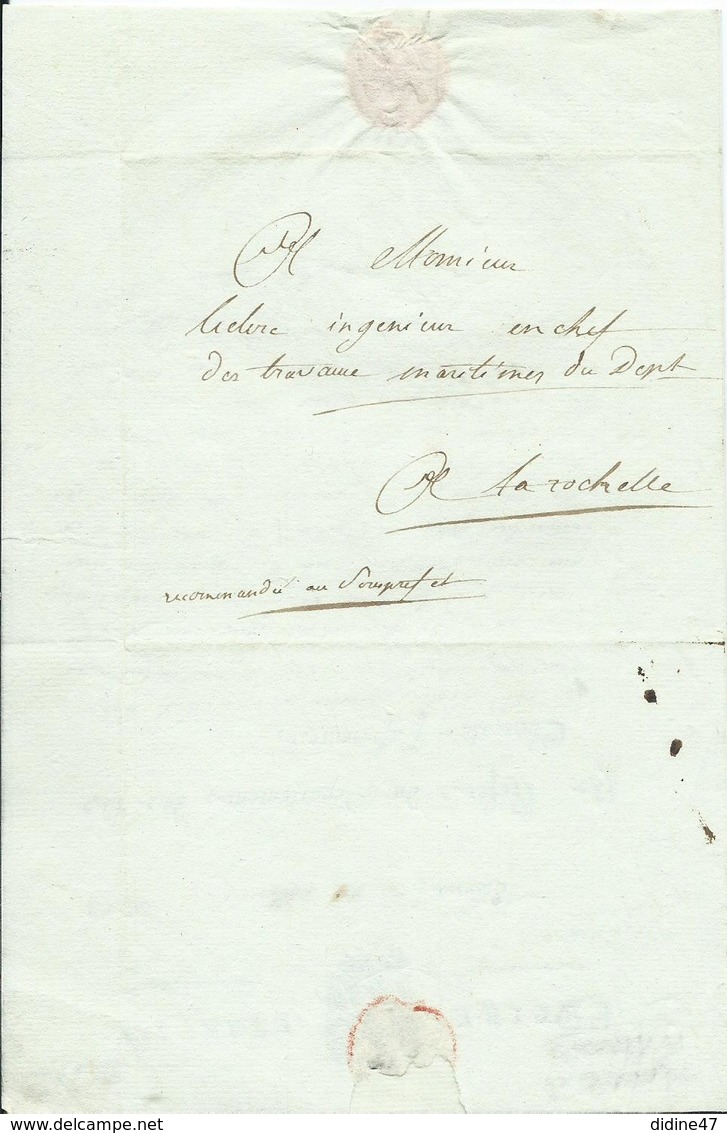 A Monsieur
leclerc ingenieur en chef
des travaux maritimes du Dept
A La rochelle
recommandé au Souspréfet
delcampe.net
didine47